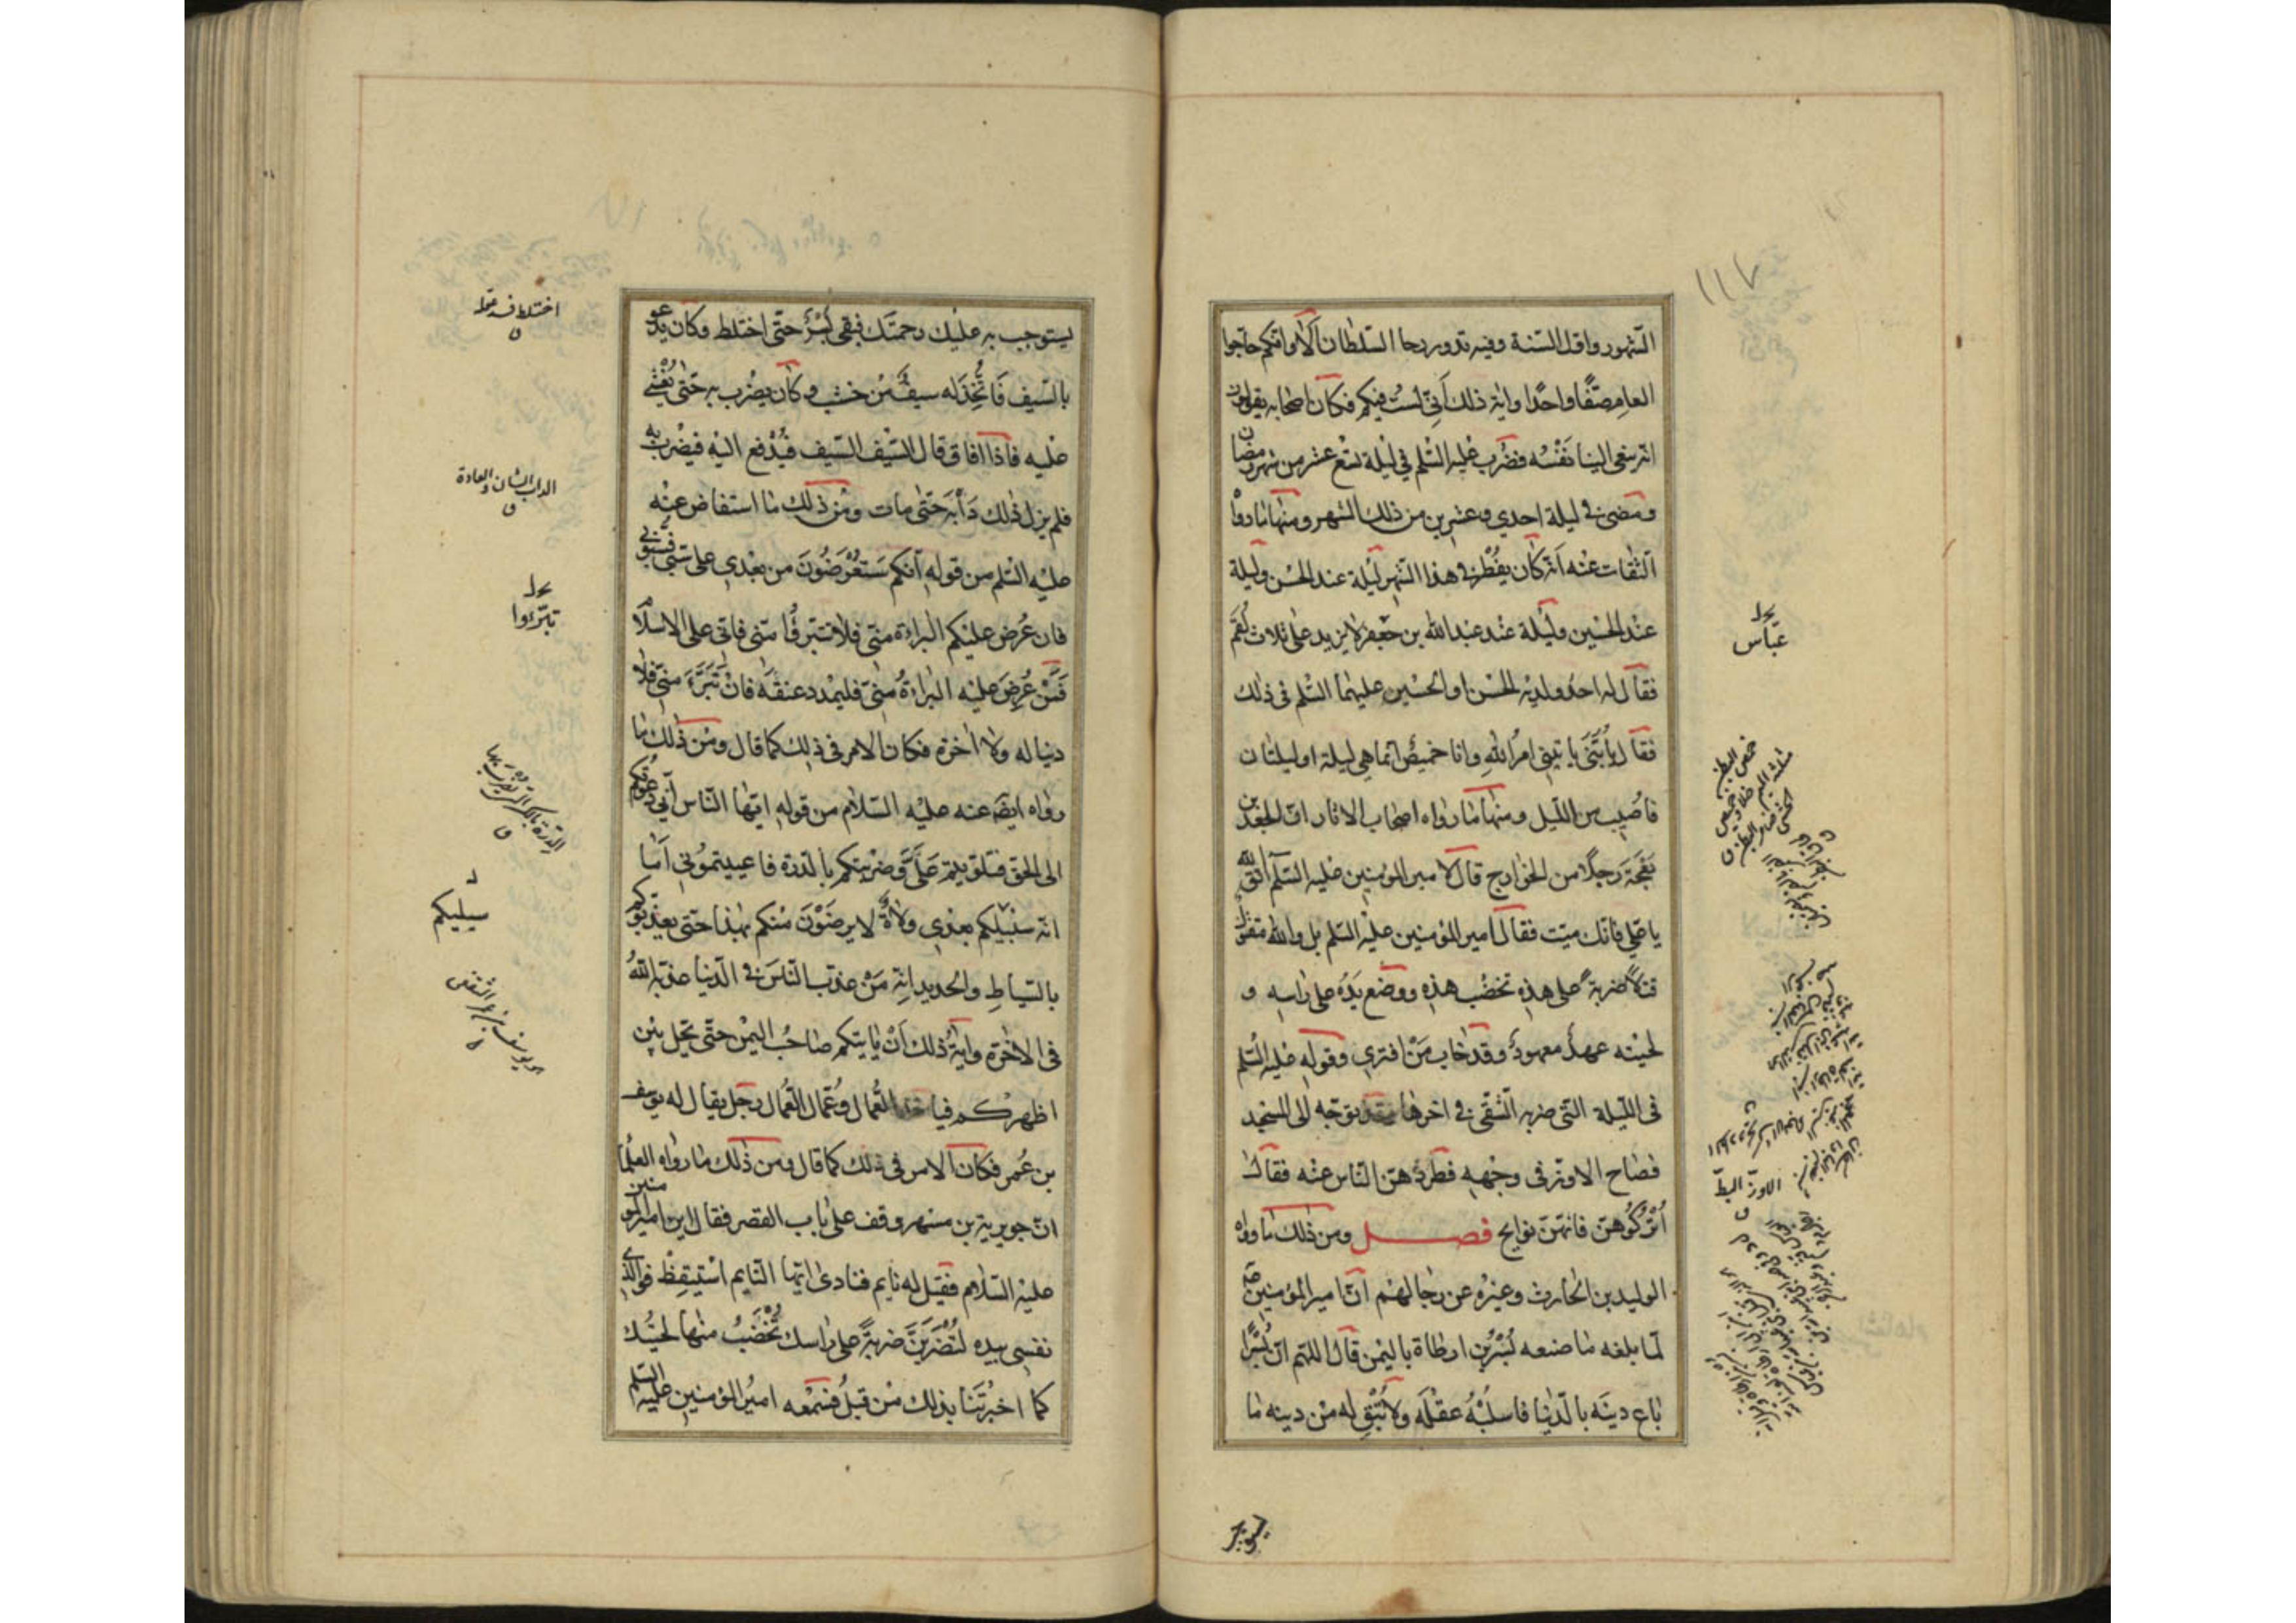 ١١٧
الشهور واول السنة وفيه تدور رحا السلطان اَلَا وانكم حاجوا
العام صفًّا واحدًا واية ذلك اَنّى لستُ فيكم فكان اصحابه يقولون
انه ينعى الينا نَفْسَه فضُرب عليه السّلم في ليلة تسع عشر من شهر رمضان
ومضى في ليلة احدي وعشرين من ذلك الشهر ومنها ما رواه
الثقات عنه انّه كان يفطر في هذا الشهر ليلة عند الحسن وليلة
عند الحسين وليلة عند عبد الله بن جعفر لا يزيد على ثلاث لُقَم
فقال له احد ولديه الحسن او الحسين عليهما السّلم فى ذلك
فقال يا بُنَىّ ياتينى امرُ اللهِ وانا خميصٌ انما هى ليلة او ليلتان
فاُصيب من الليل ومنها ما رواه اصحاب الاثار انّ الجعد بن
بَعْجَة رجلًا من الخوارج قال لامير المؤمنين عليه السّلم اتّق الله
يا علي فانك ميّت فقال امير المؤمنين عليه السّلم بل والله مقتول
قتلًا ضربةً على هذه تخضب هذه ووضع يَدَهُ على راسه و
لحيته عهدٌ معهودٌ وقد خاب مَنْ افترى وقوله عليه السّلم
فى اللّيلة التى ضربه الشّقى في اخرها وقد توجّه الى المسجد
فصاح الاوز فى وجهه فطردهنّ النّاس عنه فقال
اُتْرُكُوهُنّ فانهنّ نوايح فصل ومن ذلك ما رواه
الوليد بن الحارث وغيره عن رجالهم انّ امير المؤمنين
لمّا بلغه ما صنعه بُسْرُ بن ارطاة باليمن قال اللهم انّ بُسْرًا
باع دينَه بالدّنيا فاسلُبْهُ عقْلَه ولا تُبْقِ له من دينه ما
عبّاس
الاوزّ البطّ
يستوجب
يستوجب به عليك رحمتك فبقى بُسْرٌ حتّى اختلط وكان يدعو
بالسّيف فَاتُّخِذَ له سيفٌ من خشب وكان يضرب به حتى يُغْشى
عليه فاذا افاق قال السّيف السّيف فيُدْفع اليه فيضرب به
فلم يزل ذلك دَأْبَه حتى مات ومن ذلك ما استفاض عنه
عليه السّلم من قوله انكم سَتُعْرَضُونَ من بعدى على سَبّى فسُبّونى
فان عُرض عليكم البراءة منّى فلا تتبرّؤا منّى فانّى على الاسلام
فمَنْ عُرِضَ عليه البراءةُ منّى فليمدد عنقَه فان تَبَرَّءَ منّى فلا
دنيا له ولا اخرة فكان الامر فى ذلك كما قال ومن ذلك ما
رواه ايضًا عنه عليه السّلام من قوله ايّها النّاس اَنّى دعوتكم
الى الحق فتلوّيتم عَلَيَّ وضربتكم بالدّرة فاعييتمونى اَما
انّه سيليكم بعدى ولاةٌ لا يرضَوْنَ منكم بهذا حتّى يعذّبوكم
بالسّياطِ والحديد انه مَنْ عذّب النّاسَ فى الدّنيا عذّبه اللهُ
فى الاخرة واية ذلك اَنْ ياتيكم صاحبُ اليمن حتّى يحلّ بين
اظهركم فياخذ العُمّال وعُمّال العُمّال رجل يقال له يوسف
بن عُمر فكان الامر فى ذلك كما قال ومن ذلك ما رواه العلماء
انّ جويرية بن مسهر وقف على باب القصر فقال اين امير المؤمنين
عليه السّلام فقيل له نايم فنادى ايّها النّايم استيقِظْ فوالّذى
نفسى بيده لتُضْرَبَنَّ ضربةً على راسك تُخْضَبُ منها لحيتك
كما اخبرْتَنا بذلك من قبلُ فسمعه امير المؤمنين عليه السّلم
اختلط فسد عقله
الداب الشان والعادة
تبرّءوا
سيليكم